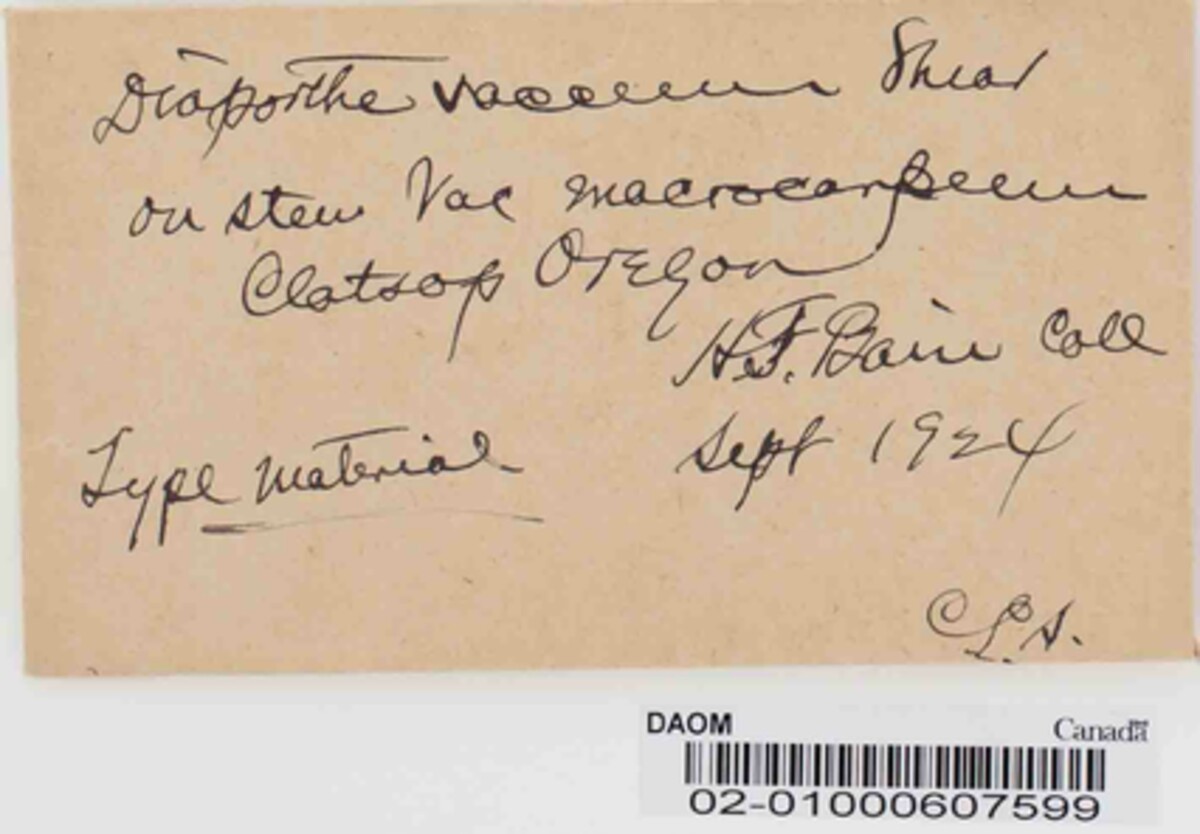 Diaporthe vaccinii Shear
on stem Vac macrocarpum
Clatsop Oregon
H.F. Bain Coll
Type material
Sept 1924
C.L.S.
DAOM
Canada
02-01000607599